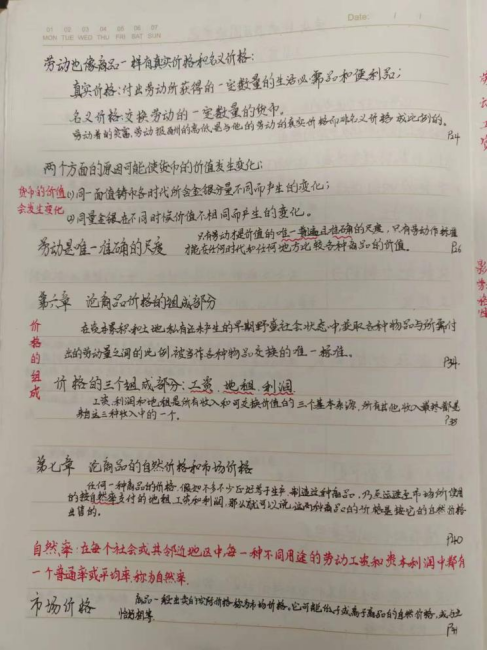 Date: / /
MON TUE WED THU FRI SAT SUN
劳动也像商品一样有真实价格和名义价格:
真实价格:付出劳动所获得的一定数量的生活必需品和便利品;
名义价格:交换劳动的一定数量的货币。
劳动者的贫富,劳动报酬的高低是与他的劳动的真实价格而非名义价格成比例的。
P24
两个方面的原因可能使货币的价值发生变化:
货币的价值
会发生变化
(1)同一面值铸币各时代所含金银分量不同而产生的变化;
(2)同量金银在不同时候价值不相同而产生的变化。
劳动是唯一准确的尺度
只有劳动才是价值的唯一普遍且准确的尺度,只有劳动作标准
才能在任何时代和任何地方比较各种商品的价值。
P26
第六章 论商品价格的组成部分
价格的组成
在没有累积和土地私有还未产生的早期野蛮社会状态中,获取各种物品与所需付
出的劳动量之间的比例,被当作各种物品交换的唯一标准。
P34
价格的三个组成部分:工资、地租、利润
工资、利润和地租是所有收入和可交换价值的三个基本来源,所有其他收入最终都是
来自这三种收入中的一个。
P35
第七章 论商品的自然价格和市场价格
任何一种商品的价格,假如不多不少正好等于生产、制造这种商品,乃至运送至市场所使用
的按自然率支付的地租、工资和利润,那么就可以说,这种商品的价格是按它的自然价格
出售的。
P40
自然率:在每个社会或其邻近地区中,每一种不同用途的劳动工资和资本利润中都有
一个普通率或平均率,称为自然率.
市场价格
商品一般出卖的实际价格称为市场价格。它可能低于或高于商品的自然价格,或与之
恰好相等
P41